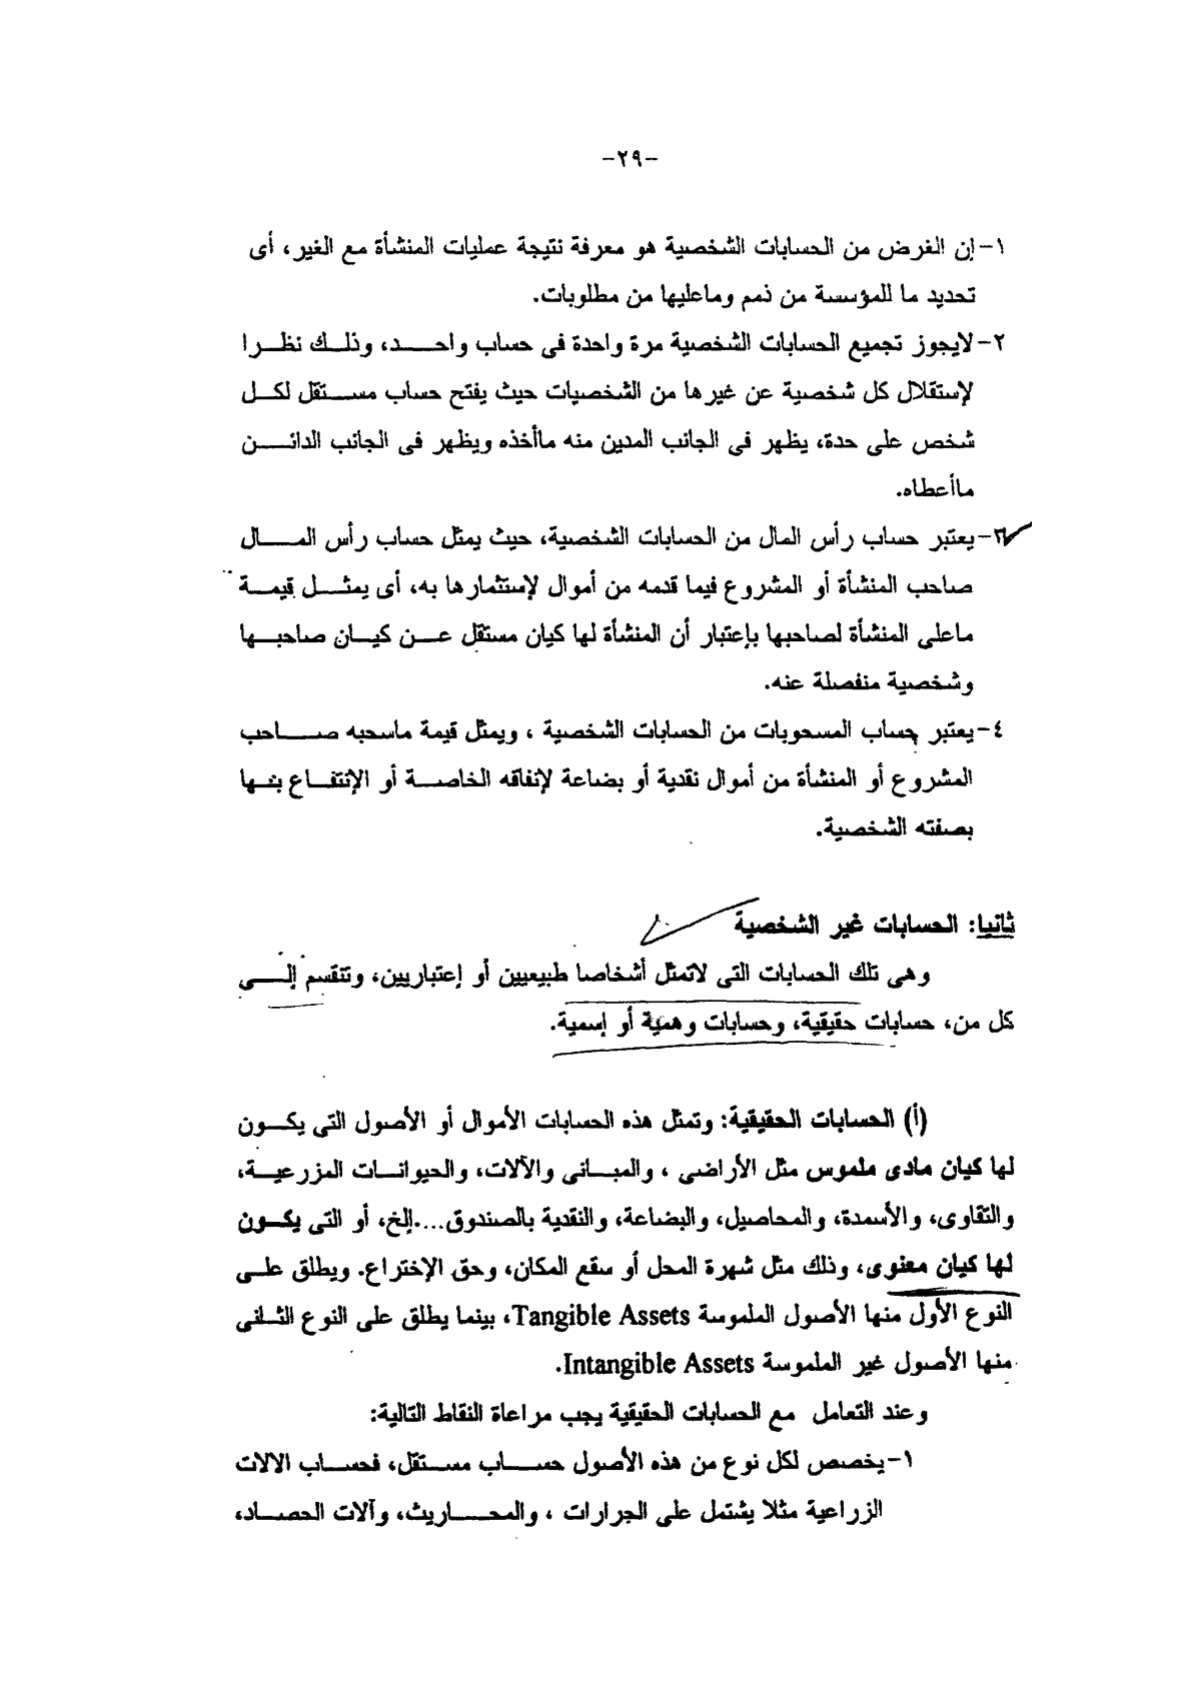 -٢٩-
١-إن الغرض من الحسابات الشخصية هو معرفة نتيجة عمليات المنشأة مع الغير، أى
تحديد ما للمؤسسة من ذمم وماعليها من مطلوبات.
٢-لايجوز تجميع الحسابات الشخصية مرة واحدة فى حساب واحد، وذلك نظرا
لإستقلال كل شخصية عن غيرها من الشخصيات حيث يفتح حساب مستقل لكل
شخص على حدة، يظهر فى الجانب المدين منه ماأخذه ويظهر فى الجانب الدائن
ماأعطاه.
٣-يعتبر حساب رأس المال من الحسابات الشخصية، حيث يمثل حساب رأس المال
صاحب المنشأة أو المشروع فيما قدمه من أموال لإستثمارها به، أى يمثل قيمة
ماعلى المنشأة لصاحبها بإعتبار أن المنشأة لها كيان مستقل عن كيان صاحبها
وشخصية منفصلة عنه.
٤-يعتبر حساب المسحوبات من الحسابات الشخصية ، ويمثل قيمة ماسحبه صاحب
المشروع أو المنشأة من أموال نقدية أو بضاعة لإنفاقه الخاصة أو الإنتفاع بها
بصفته الشخصية.
ثانيا: الحسابات غير الشخصية
وهى تلك الحسابات التى لاتمثل أشخاصا طبيعيين أو إعتباريين، وتنقسم إلى
كل من، حسابات حقيقية، وحسابات وهمية أو إسمية.
(أ) الحسابات الحقيقية: وتمثل هذه الحسابات الأموال أو الأصول التى يكون
لها كيان مادى ملموس مثل الأراضى ، والمبانى والآلات، والحيوانات المزرعية،
والتقاوى، والأسمدة، والمحاصيل، والبضاعة، والنقدية بالصندوق....إلخ، أو التى يكون
لها كيان معنوى، وذلك مثل شهرة المحل أو سقع المكان، وحق الإختراع. ويطلق على
النوع الأول منها الأصول الملموسة Tangible Assets، بينما يطلق على النوع الثانى
منها الأصول غير الملموسة Intangible Assets.
وعند التعامل مع الحسابات الحقيقية يجب مراعاة النقاط التالية:
١-يخصص لكل نوع من هذه الأصول حساب مستقل، فحساب الالات
الزراعية مثلا يشتمل على الجرارات ، والمحاريث، وآلات الحصاد،